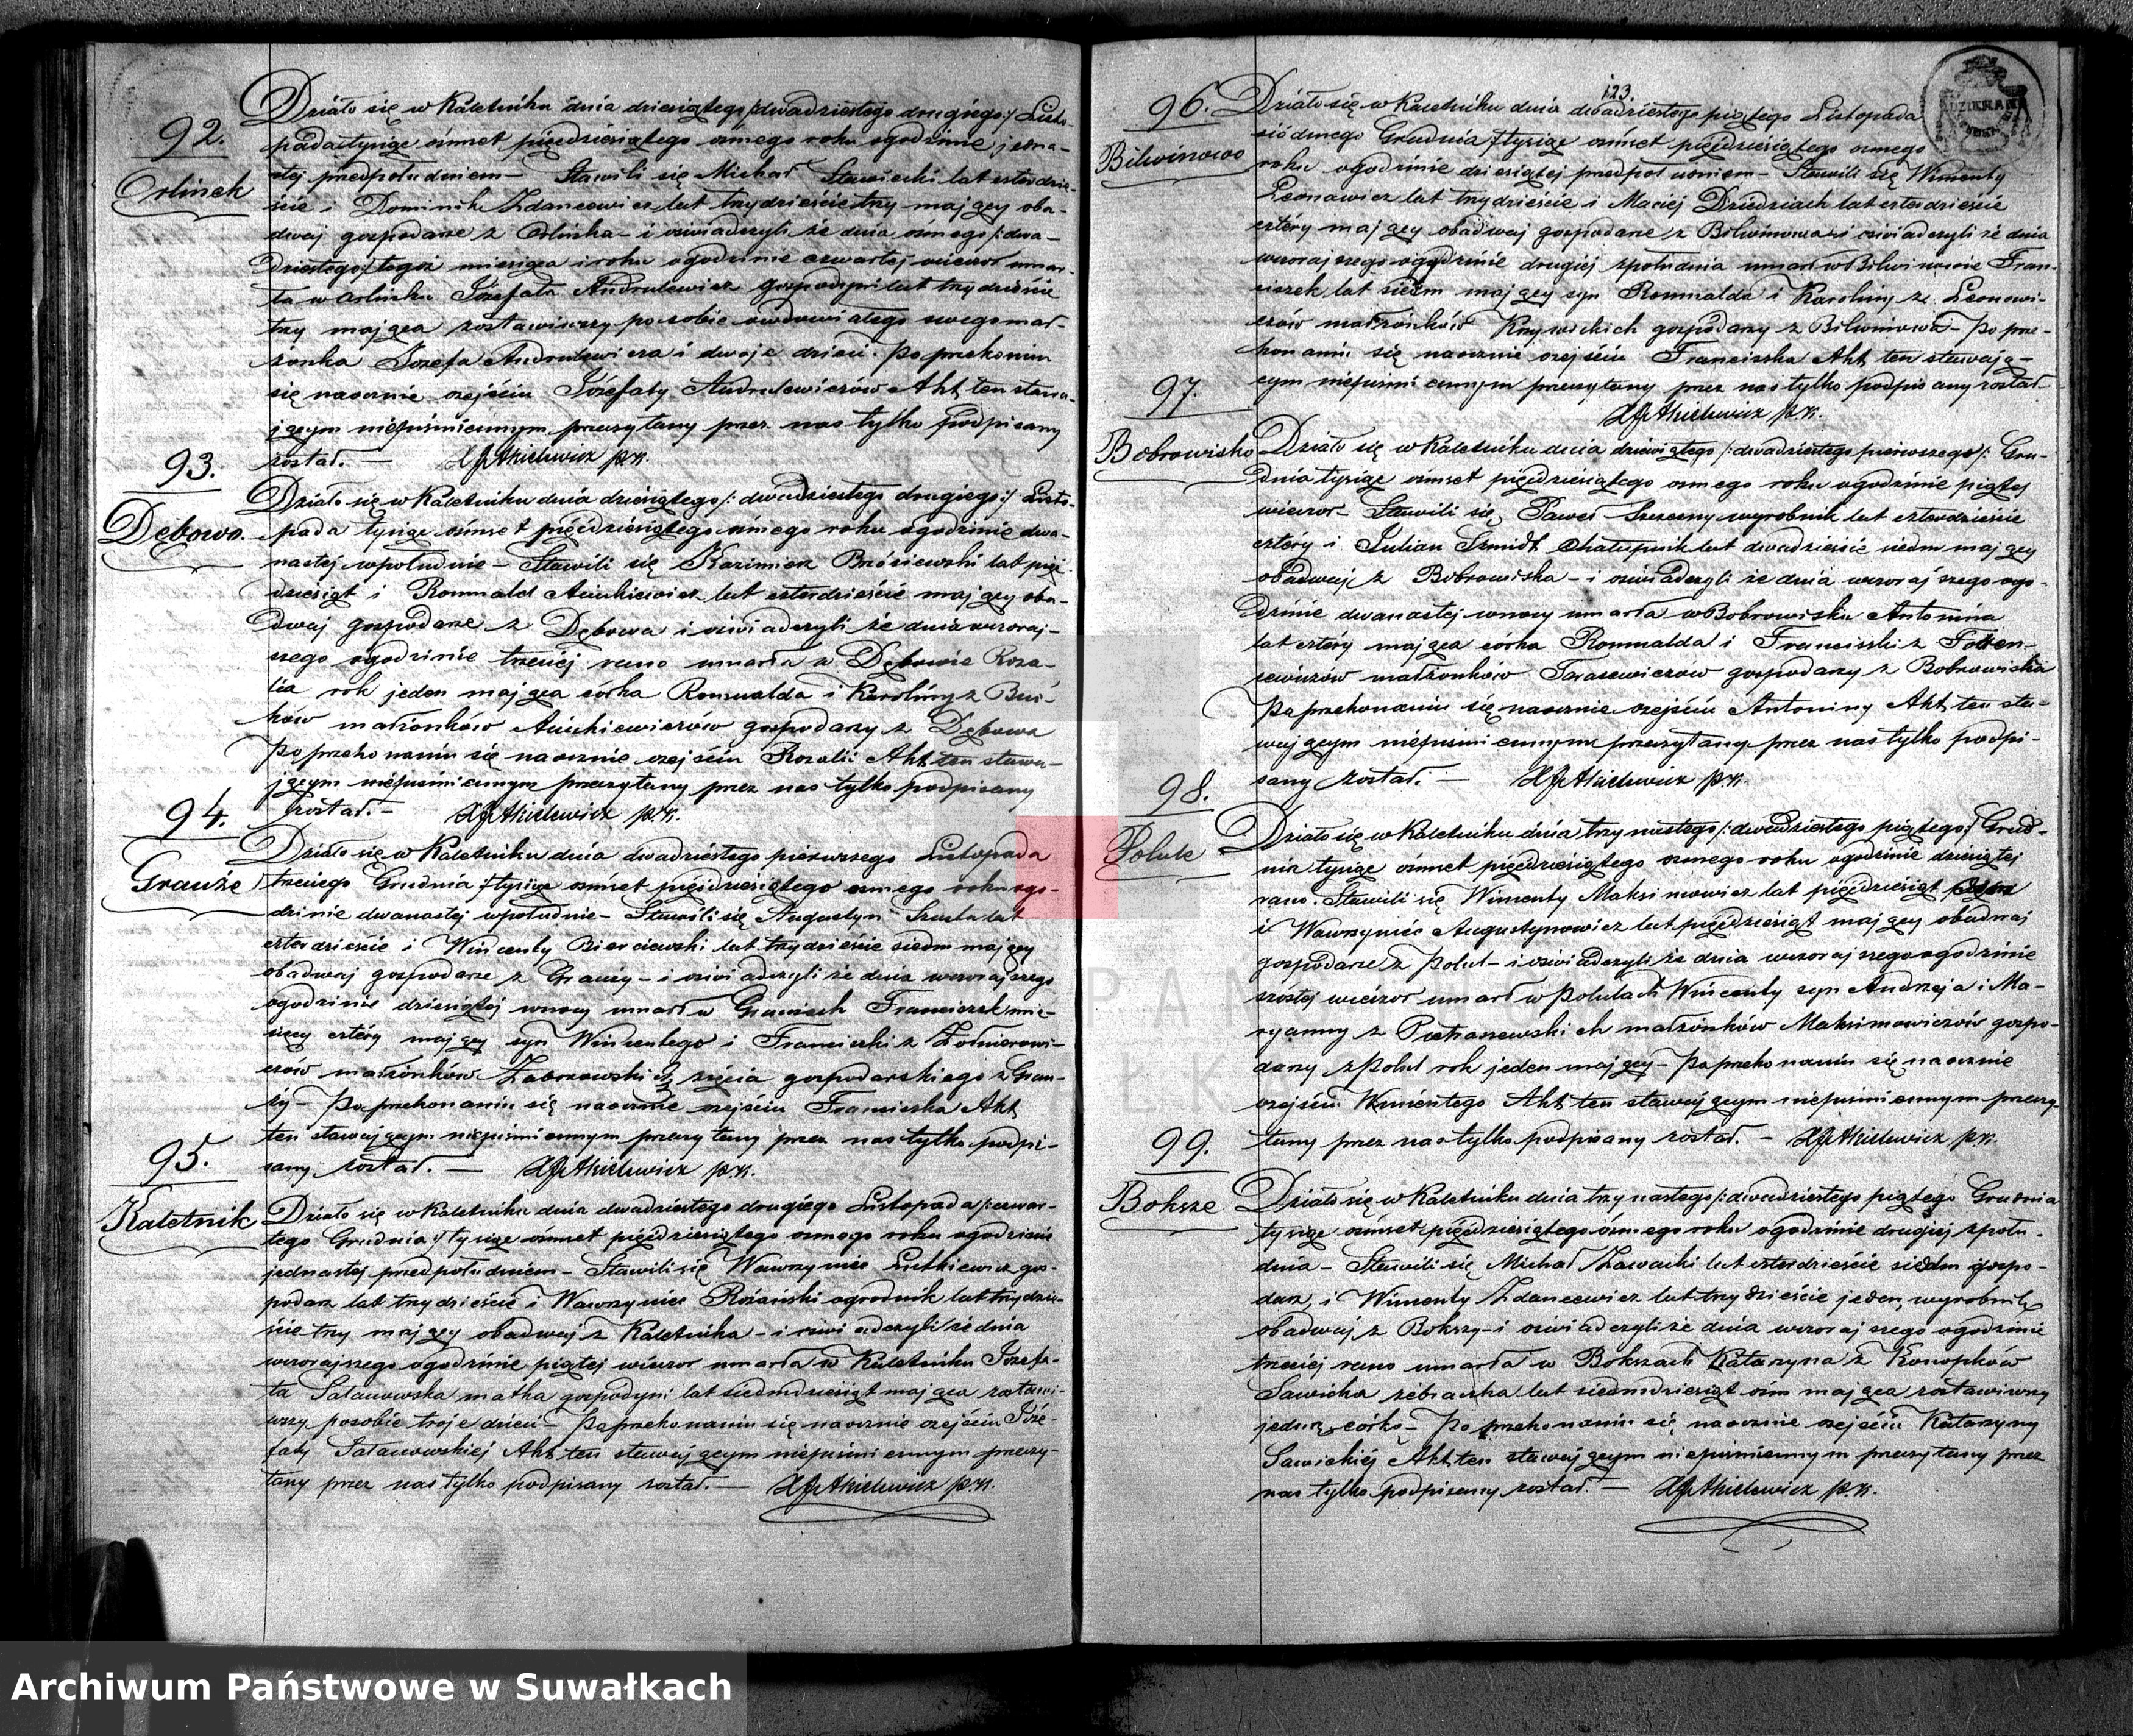 92.
Orlinek
Działo się w Kaletniku dnia dziesiątego /:dwadziestego drugiego:/ Listo-
pada tysiąc ośmset pięćdziesiątego osmego roku ogodzinie jedna-
stej przedpołudniem – Stawili się Michał Sławiecki lat czterdzie-
ście i Dominik Zdancewicz lat trzydzieście trzy mający oba-
dwaj gospodarze z Orlinka – i oświadczyli że dnia ósmego /:dwa-
dziestego:/ tegoż miesiąca i roku ogodzinie czwartej wieczor umar-
ła w Orlinku Józefata Andrulewicz gospodyni lat trzydzieście
trzy mająca zostawiwszy po sobie owdowiałego swego mał-
żonka Józefa Andrulewicza i dwoje dzieci. Po przekonaniu
się naocznie o zejściu Józefaty Andrulewiczów Akt ten stawa-
jącym niepiśmiennym przeczytany przez nas tylko podpisany
został. – XJAkielewicz p.K.
93.
Dębowo.
Działo się w Kaletniku dnia dziesiątego /:dwadziestego drugiego:/ Listo-
pada tysiąc ośmset pięćdziesiątego osmego roku ogodzinie dwu-
nastej wpołudnie – Stawili się Kazimierz Brzósiewski lat pięć-
dziesiąt i Romuald Ancukiewicz lat czterdzieście mający oba-
dwaj gospodarze z Dębowa i oświadczyli że dnia wczoraj-
szego ogodzinie trzeciej rano umarła w Dębowie Roza-
lia rok jeden mająca córka Romualda i Karoliny z Buć-
ków małżonków Ancukiewiczów gospodarzy z Dębowa
Po przekonaniu się naocznie o zejściu Rozalii Akt ten stawa-
jącym niepiśmiennym przeczytany przez nas tylko podpisany
został. – XJAkielewicz p.K.
94.
Grauże
Działo się w Kaletniku dnia dwadziestego pierwszego Listopada
trzeciego Grudnia /tysiąc ośmset pięćdziesiątego osmego roku ogo-
dzinie dwanastej wpołudnie – Stawili się Augustyn Szosta lat
czterdzieście i Wincenty Bierciewski lat trzydzieście siedm mający
obadwaj gospodarze z Grauży – i oświadczyli że dnia wczorajszego
ogodzinie dziesiątej wnocy umarł w Grauzach Franciszek mie-
sięcy cztéry mający syn Wincentego i Franciszki z Żołnierowi-
czów małżonków Zaborowskich zięcia gospodarskiego z Grau-
ży – Po przekonaniu się naocznie o zejściu Franciszka Akt
ten stawającym niepiśmiennym przeczytany przez nas tylko podpi-
sany został. – XJAkielewicz p.K.
95.
Kaletnik
Działo się w Kaletniku dnia dwadziestego drugiego Listopada /:czwar-
tego Grudnia:/ tysiąc ośmset pięćdziesiątego osmego roku ogodzinie
jednastej przedpołudniem – Stawili się Wawrzyniec Lutkiewicz gos-
podarz lat trzydzieście i Wawrzyniec Rożański ogrodnik lat trzydzie-
ście trzy mający obadwaj z Kaletnika – i oświadczyli że dnia
wczorajszego ogodzinie piątej wieczor umarła w Kaletniku Józefa-
ta Sałanowska matka gospodyni lat siedmdziesiąt mająca zostawi-
wszy posobie troje dzieci – Po przekonaniu się naocznie o zejściu Józe-
faty Sałanowskiej Akt ten stawającym niepiśmiennym przeczy-
tany przez nas tylko podpisany został. – XJAkielewicz p.K.
123.
96.
Bilwinowo
Działo się w Kaletniku dnia dwadziestego piątego Listopada
siódmego Grudnia /tysiąc ośmset pięćdziesiątego osmego
roku ogodzinie dziesiątej przedpołudniem – Stawili się Wincenty
Leonawicz lat trzydzieście i Maciej Dziedziach lat czterdzieście
cztéry mający obadwaj gospodarze z Bilwinowa – i oświadczyli że dnia
wczorajszego ogodzinie drugiej zpołudnia umarł w Bilwinowie Fran-
ciszek lat siedm mający syn Romualda i Karoliny z Leonowi-
czów małżonków Krzywickich gospodarzy z Bilwinowa – Po prze-
konaniu się naocznie o zejściu Franciszka Akt ten stawają-
cym niepiśmiennym przeczytany przez nas tylko podpisany został
XJAkielewicz p.K.
97.
Bobrowisko
Działo się w Kaletniku dnia dziewiątego /:dwadziestego pierwszego:/ Gru-
dnia tysiąc ośmset pięćdziesiątego osmego roku ogodzinie piątej
wieczor – Stawili się Paweł Szczesny wyrobnik lat czterdzieście
cztéry i Julian Szmidt Chałupnik lat dwadzieście siedm mający
obadwaj z Bobrowiska – i oświadczyli że dnia wczorajszego ogo-
dzinie dwanastej wnocy umarła w Bobrowisku Antonina
lat cztéry mająca córka Romualda i Franciszki z
małżonków Tarasewiczow gospodarzy z Bobrowiska
Po przekonaniu się naocznie o zejściu Antoniny Akt ten sta-
wającym niepiśmiennym przeczytany przez nas tylko podpi-
sany został. – XJAkielewicz p.K.
98.
Połule
Działo się w Kaletniku dnia trzynastego /:dwadziestego piątego:/ Grud-
nia tysiąc ośmset pięćdziesiątego osmego roku ogodzinie dziesiątej
rano. Stawili się Wincenty Maksimowicz lat pięćdziesiąt
i Wawrzyniec Augustynowicz lat pięćdziesiąt mający obadwaj
gospodarze z Połul – i oświadczyli że dnia wczorajszego ogodzinie
szóstej wieczor umarł w Połulach Wincenty syn Andrzeja i Ma-
ryanny z Pietraszewskich małżonków Maksimowiczów gospo-
darzy z Połul rok jeden mający – Po przekonaniu się naocznie
o zejściu Wincentego Akt ten stawającym niepiśmiennym przeczy-
tany przez nas tylko podpisany został. – XJAkielewicz p.K.
99.
Boksze
Działo się w Kaletniku dnia trzynastego /:dwadziestego piątego Grudnia
tysiąc ośmset pięćdziesiątego ósmego roku ogodzinie drugiej zpołu-
dnia – Stawili się Michał Zawacki lat czterdzieście siedm gospo-
darz, i Wincenty Zdancewicz lat trzydzieście jeden, wyrobnik
obadwaj z Bokszy – i oświadczyli że dnia wczorajszego ogodzinie
trzeciej rano umarła w Bokszach Katarzyna z Konopków
Sawicka żebraczka lat siedmdziesiąt ośm mająca zostawiwszy
jedną córkę – Po przekonaniu się naocznie o zejściu Katarzyny
Sawickiéj Akt ten stawającym niepiśmiennym przeczytany przez
nas tylko podpisany został. – XJAkielewicz p.K.
Archiwum Państwowe w Suwałkach